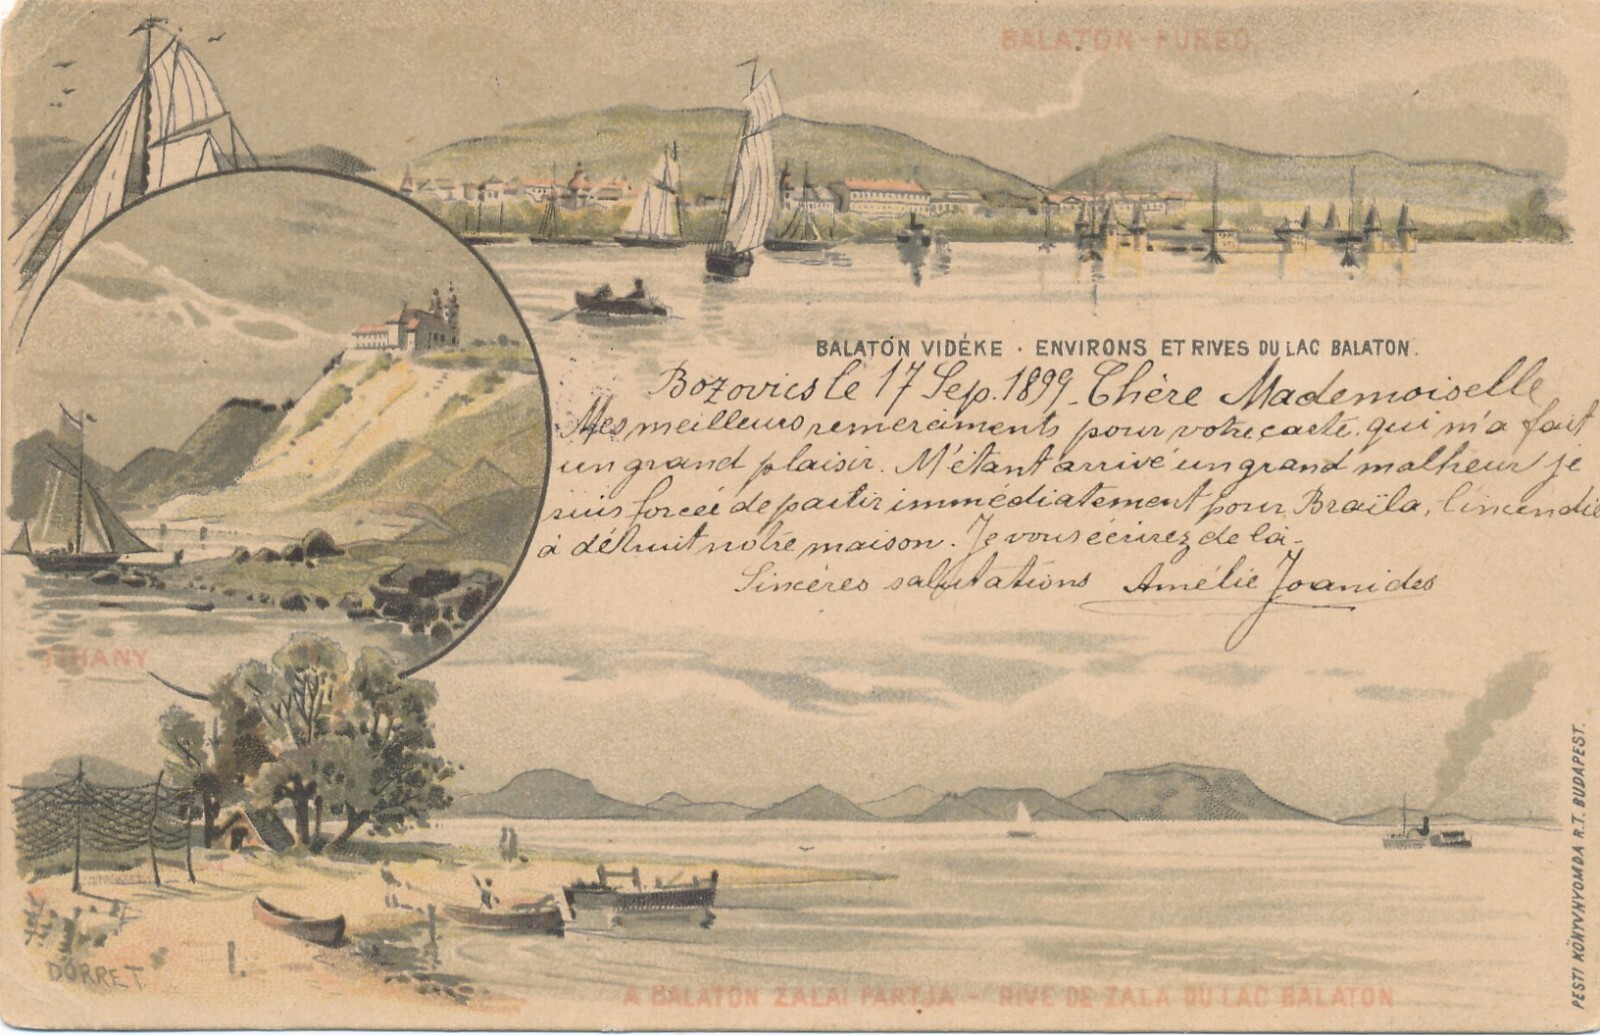 BALATON-FÜRED.
BALATON VIDÉKE · ENVIRONS ET RIVES DU LAC BALATON.
Bozovics le 17 Sep. 1899. Chère Mademoiselle
Mes meilleurs remerciments pour votre carte qui m'a fait
un grand plaisir. M'étant arrivé un grand malheur je
suis forcée de partir immédiatement pour Braïla, l'incendie
à détruit notre maison. Je vous écrirez de là.
Sincères salutations Amélie Joanides
TIHANY
DÖRRET.
1.
A BALATON ZALAI PARTJA - RIVE DE ZALA DU LAC BALATON
PESTI KÖNYVNYOMDA R.T. BUDAPEST.